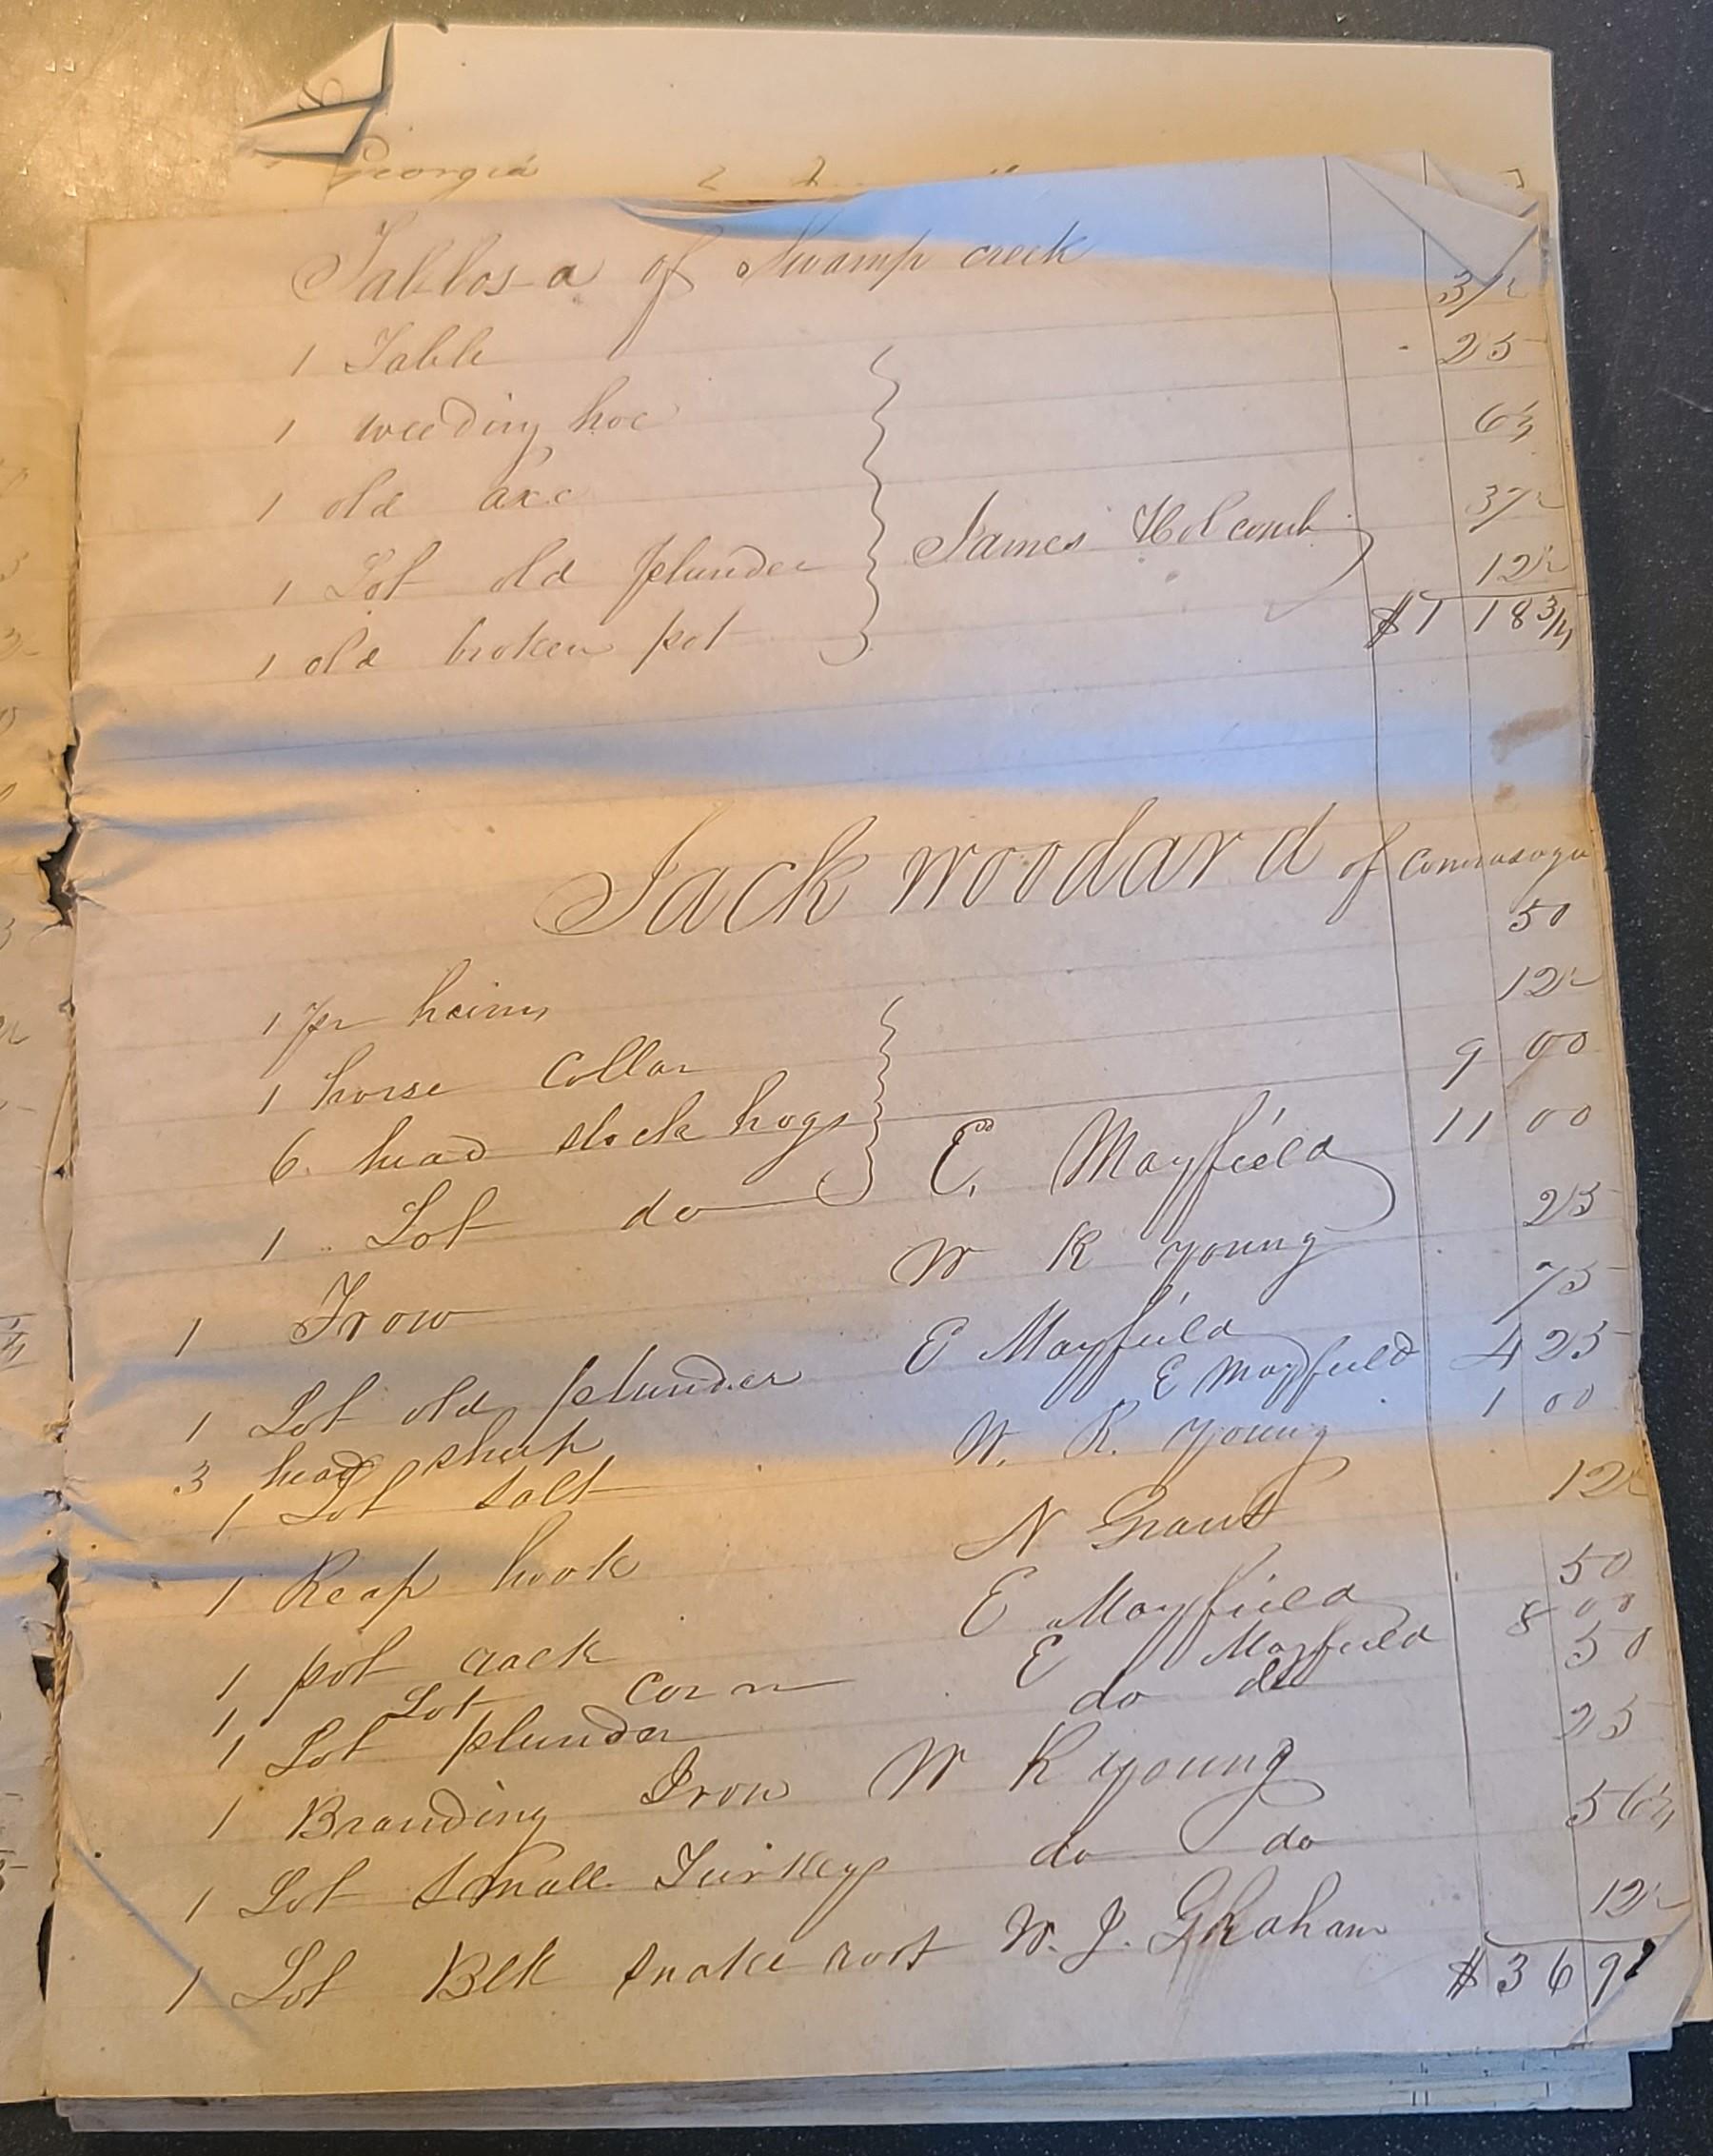 Georgia
Tallosa of Swamp creek
1 Table 37½
1 weeding hoe 25
1 old axe 6¼
1 Lot old plunder James Holcomb 37½
1 old broken pot 12½
$1 18¾
Jack Woodard of
1 pr heims 50
1 horse Collar 12½
6. head stock hogs 9 00
1 Lot do E. Mayfield 11 00
1 Frow W R Young 25
1 Lot old plunder E Mayfield 75
3 head sheep E Mayfield 4 25
1 Lot salt W. R. Young 1 00
1 Reap hook N Grant 12½
1 pot rack E Mayfield 50
1 Lot corn E Mayfield 8 00
1 Lot plunder do do 50
1 Branding Iron W R Young 25
1 Lot Small Turkeys do do 56¼
1 Lot Blk snake root W. J. Ghaham 12½
$36 9